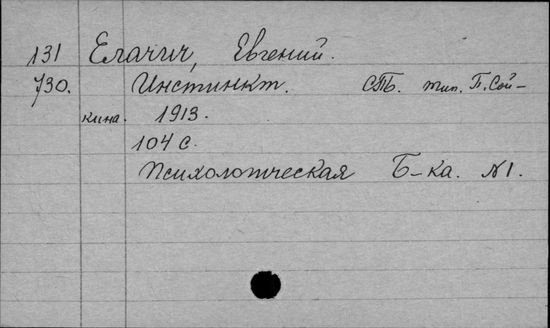 131 Елачич, Евгений.
730. Инстинкт. СПБ. тип. П. Сой-
кина. 1913.
104 с.
Психологическая Б-ка. №1.